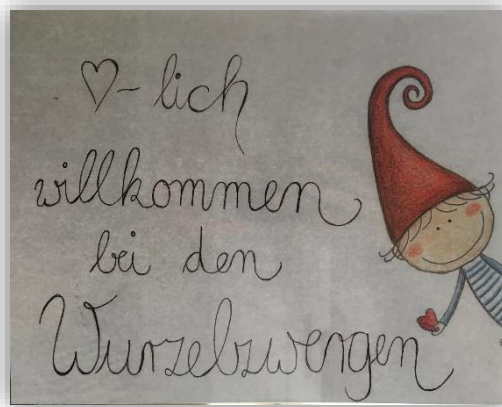 ♡-lich
willkommen
bei den
Wurzelzwergen